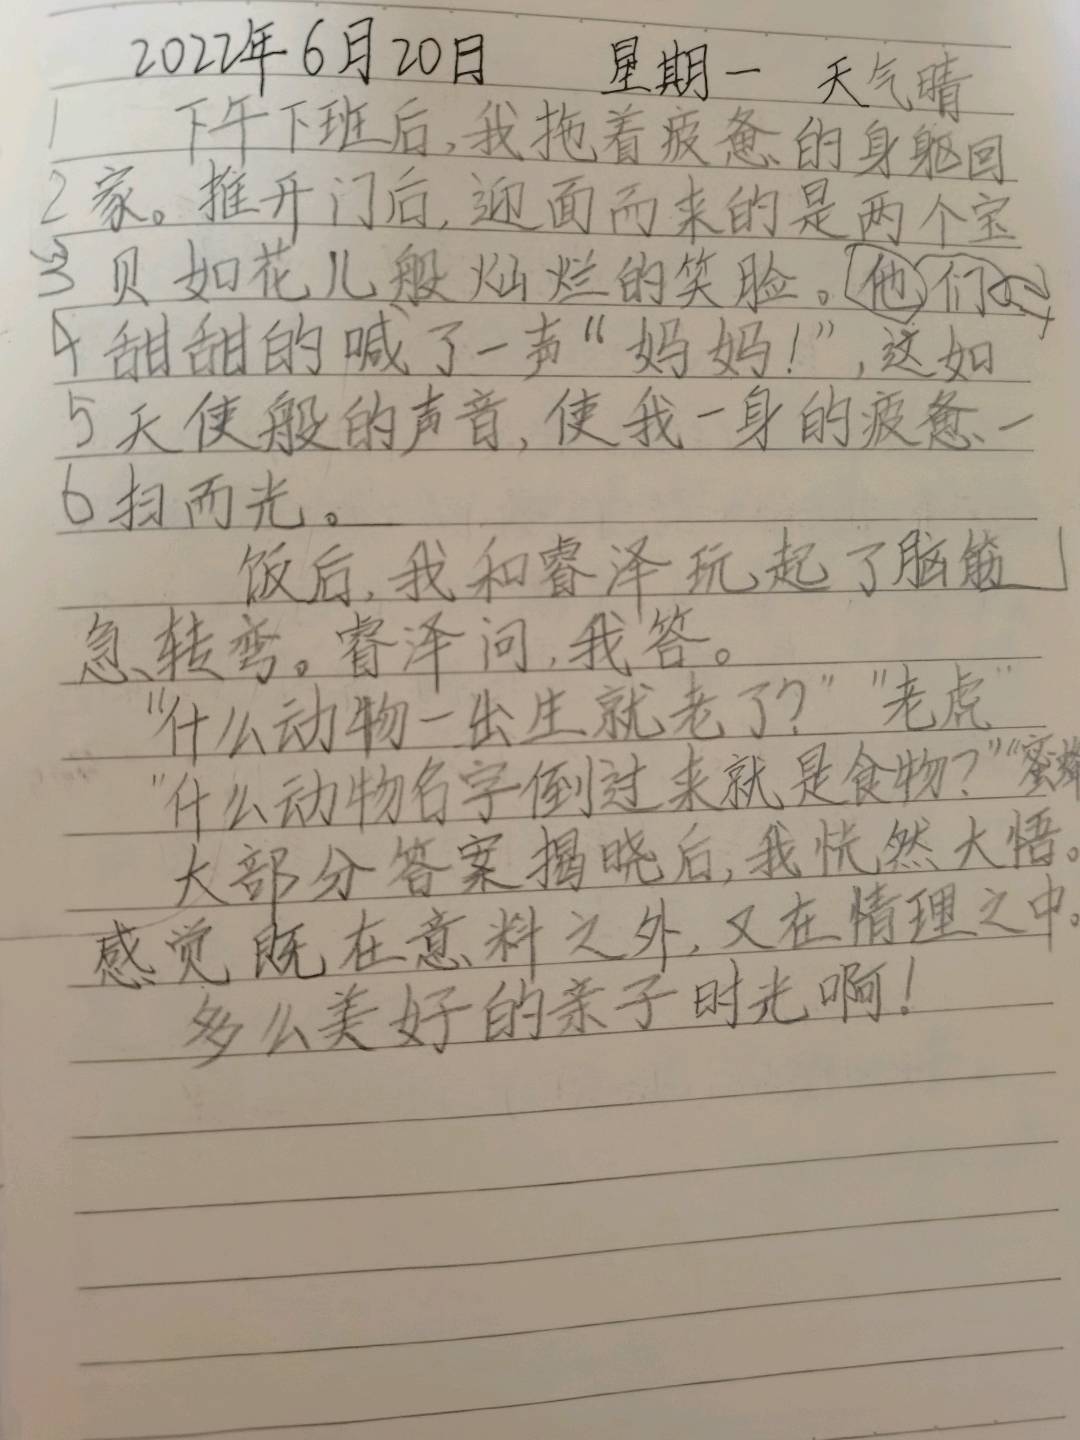 2022年6月20日 星期一 天气晴
1 下午下班后,我拖着疲惫的身躯回
2 家。推开门后,迎面而来的是两个宝
3 贝如花儿般灿烂的笑脸。他们
4 甜甜的喊了一声“妈妈!”,这如
5 天使般的声音,使我一身的疲惫一
6 扫而光。
饭后,我和睿泽玩起了脑筋
急转弯。睿泽问,我答。
“什么动物一出生就老了?”“老虎”
“什么动物名字倒过来就是食物?”“蜜蜂
大部分答案揭晓后,我恍然大悟。
感觉既在意料之外,又在情理之中。
多么美好的亲子时光啊!